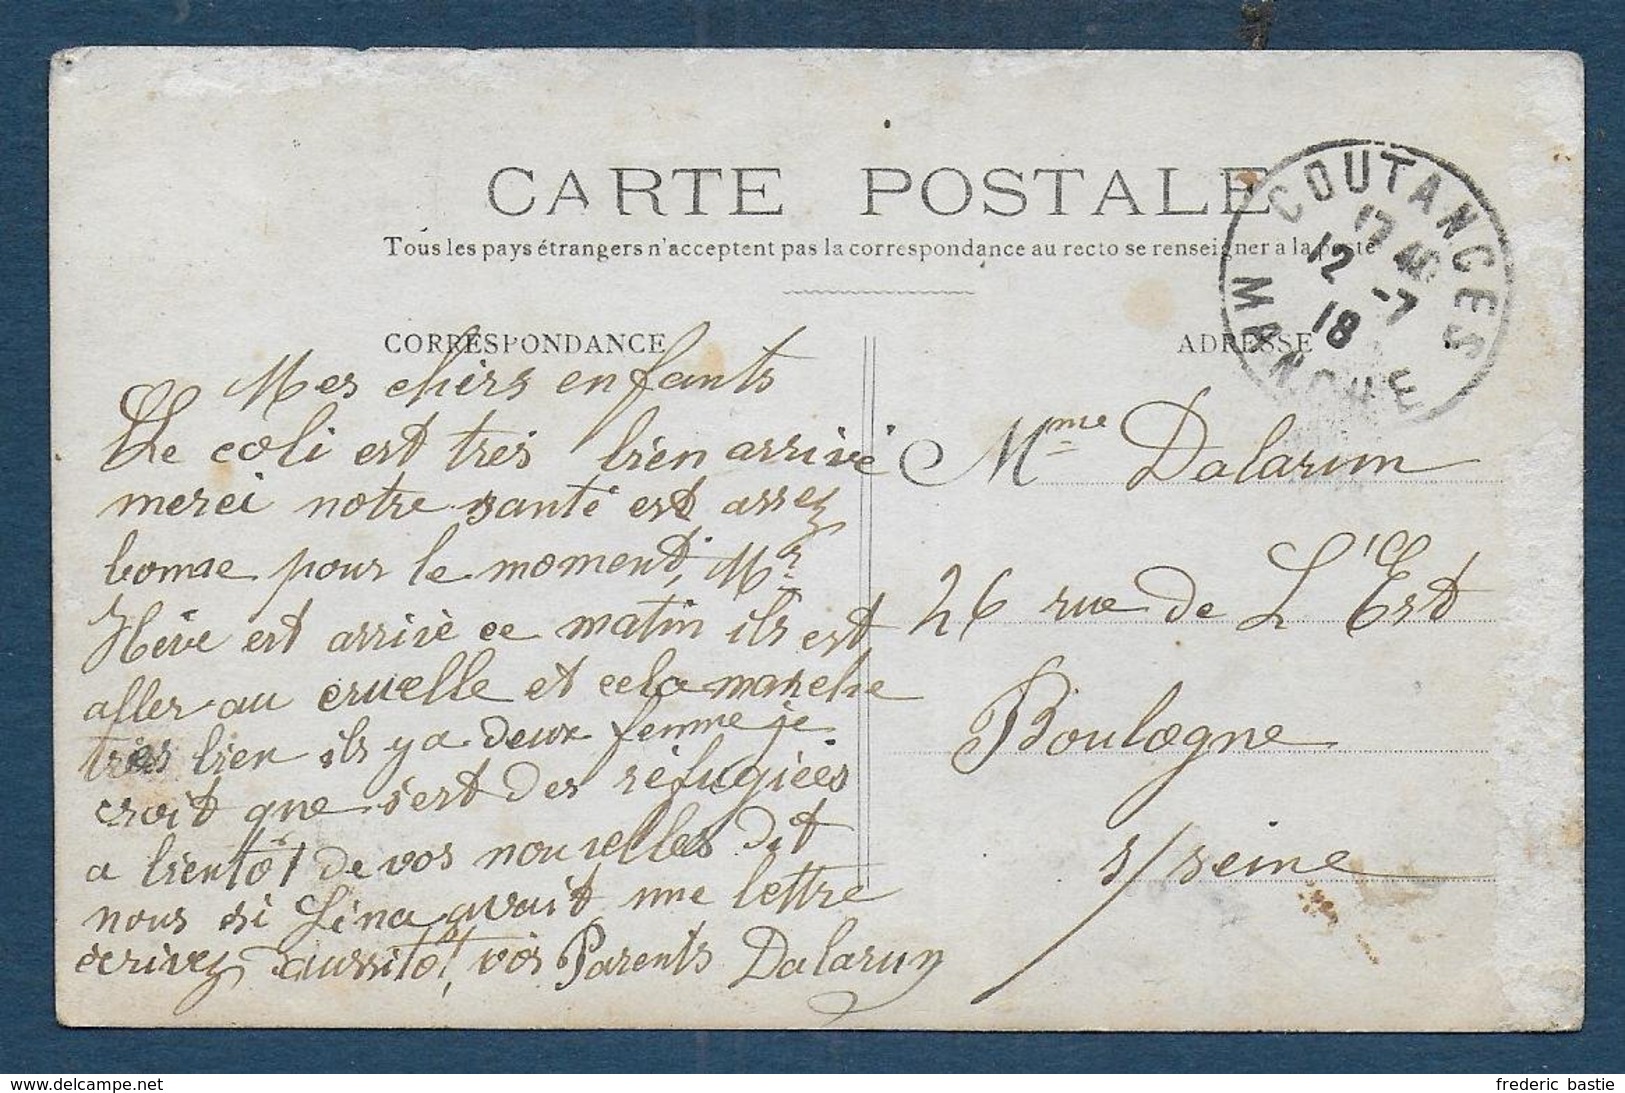 CARTE POSTALE
Tous les pays étrangers n'acceptent pas la correspondance au recto se renseigner a la poste
CORRESPONDANCE
Mes chèrs enfants
Le coli est très bien arrivé
merci notre santé est assez
bonne pour le moment, Mr
Hêve est arrivé ce matin ils est
aller au cruelle et cela marche
très bien ils y a deux femme je
croit que s'est des réfugiées
a bientôt de vos nouvelles dit
nous si Lina avait une lettre
écrivez aussitôt, vos Parents Dalarun
ADRESSE
Mme Dalarun
26 rue de L'Est
Boulogne
s/ seine
COUTANCES
17 40
12 -7
18
MANCHE
delcampe.net
frederic bastie